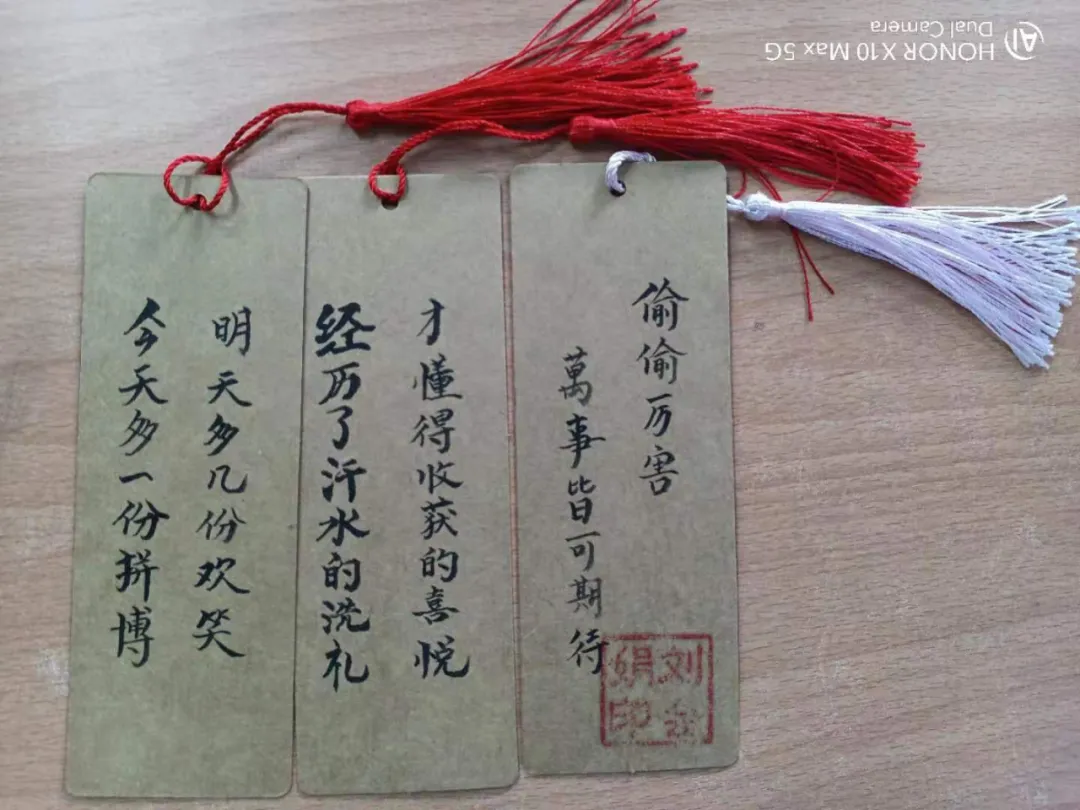 今天多一份拼博
明天多几份欢笑
经历了汗水的洗礼
才懂得收获的喜悦
偷偷厉害
萬事皆可期待
刘
娟印
HONOR X10 Max 5G
Dual Camera
AI